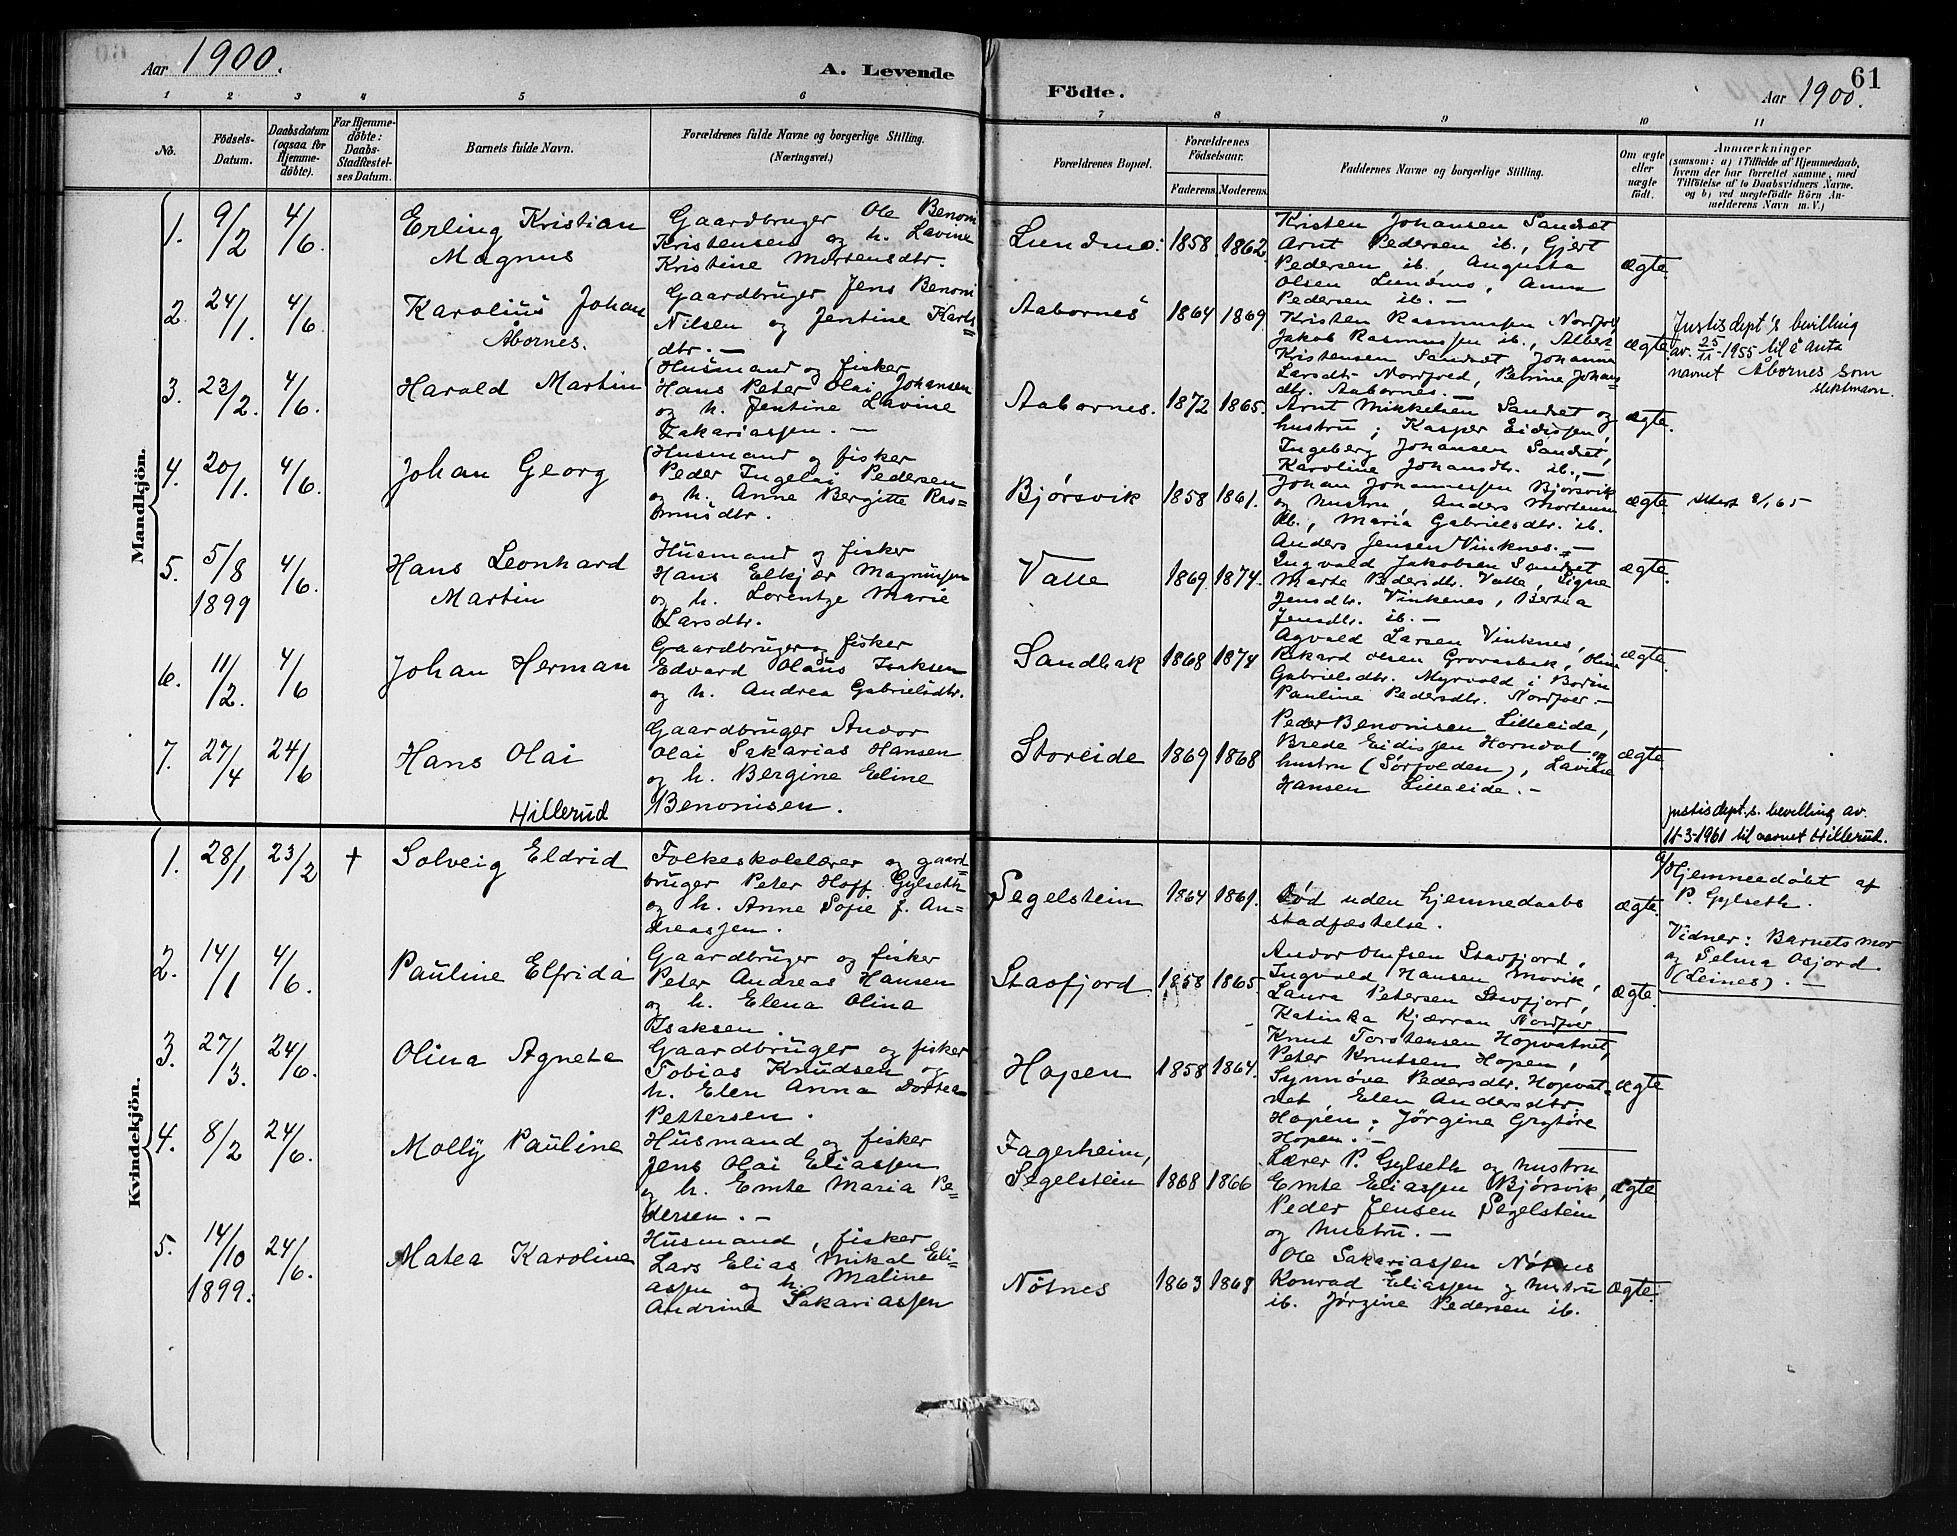 Aar 1900.
A. Levende
Födte.
Aar 1900.
61
1 2 3 4 5 6 7 8 9 10 11
No.
Födsels-
Datum.
Daabsdatum
(ogsaa for
Hjemme-
döbte).
For Hjemme-
döbte:
Daabs-
Stadfæstel-
ses Datum.
Barnets fulde Navn.
Forældrenes fulde Navne og borgerlige Stilling.
(Næringsvei.)
Forældrenes Bopæl.
Forældrenes
Födselsaar.
Faderens. Moderens.
Faddernes Navne og borgerlige Stilling.
Om ægte
eller
uægte
födt.
Anmærkninger
(saasom: a) i Tilfælde af Hjemmedaab,
hvem der har forrettet samme, med
Tilföielse af to Daabsvidners Navne.
og b) ved uægtefödte Börn An-
melderens Navn m. V.)
Mandkjön.
1. 9/2 4/6.
Erling Kristian
Magnus
Gaardbruger Ole Benoni
Kristensen og h. Lavine
Kristine Mortensdtr.
Lundmo: 1858 1862
Kristen Johansen Sandset
Arnt Pedersen ib., Gjert
Pedersen ib., Augusta
Olsen Lundmo, Anna
Pedersen ib. —
ægte
2. 24/1. 4/6
Karolius Johan
Åbornes.
Gaardbruger Jens Benoni
Nilsen og Jentine Karls=
dtr. —
Aabornes 1864 1869
Kristen Rasmussen Nordfjord
Jakob Rasmussen ib., Albert
Kristensen Sandset, Johanna
Larsdtr. Nordfjord, Petrine Johans
dtr. Aabornes. —
ægte
Justisdept's bevilling
av 25/11-1955 til å anta
navnet Åbornes som
slektsnavn.
3. 23/2. 4/6.
Harald Martin
Husmand og fisker
Hans Peter Olai Johansen
og h. Jentine Lavine
Zakariassen. —
Aabornes. 1872 1865.
Arnt Mikkelsen Sandset og
hustru; Kasper Eidissen,
Ingeberg Johansen Sandset,
Karoline Johansdtr. ib. —
ægte.
4. 20/1. 4/6.
Johan Georg
Husmand og fisker
Peder Ingelai Pedersen
og h. Anne Bergitte Ras=
musdtr.
Bjørsvik 1858 1861.
Johan Johannessen Bjørsvik
og hustru, Anders Mortensen
ib., Maria Gabrielsdtr. ib.
Anders Jensen Vinknes. —
ægte
5. 5/8 1899 4/6.
Hans Leonhard
Martin
Husmand og fisker
Hans Elkjær Magnussen
og h. Lorentze Marie
Larsdtr.
Valle 1869 1874.
Ingvald Jakobsen Sandset
Marte Pedersdtr. Valle, Signe
Jensdtr. Vinkenes, Bertha
Jensdtr. ib. —
ægte.
6. 11/2. 4/6
Johan Herman
Gaardbruger og fisker
Edvard Olaus Isaksen
og h. Andrea Gabrielsdtr.
Sandbak 1868 1874
Agvald Larsen Vinknes,
Rikard Olsen Grovasbak, Oline
Gabrielsdtr. Myrvold i Bodin
Pauline Pedersdtr. Nordfjor. —
ægte.
7. 27/4 24/6
Hans Olai
Hillerud
Gaardbruger Andor
Olai Sakarias Hansen
og h. Bergine Eline
Benonisen.
Storeide 1869 1868
Peder Benonisen Lilleeide,
Brede Eidissen Horndal og
hustru (Sørfolden), Lavine
Hansen Lilleeide. —
ægte.
justisdept.s. bevilling av.
11-3-1961 til navnet Hillerud.
Kvindekjön.
1. 28/1 23/2 +
Solveig Eldrid
Folkeskolelærer og gaard
bruger Peter Hoff Gylseth
og h. Anne Sofie f. An=
dreassen.
Segelstein 1864 1861.
Död uden hjemmedaabs
stadfæstelse.
ægte.
a/ Hjemmedöbt af
P. Gylseth.
Vidner: Barnets mor
og Selma Asjord
(Leines). —
2. 14/1 4/6.
Pauline Elfrida
Gaardbruger og fisker
Peter Andreas Hansen
og h. Elena Olina
Isaksen.
Stavfjord 1858 1865.
Andor Olufsen Stavfjord,
Ingvald Hansen Movik,
Laura Petersen Stavfjord,
Katinka Kjærran Nordfjor.
ægte.
3. 27/3. 24/6.
Olina Agneta
Gaardbruger og fisker
Tobias Knudsen og
h. Elen Anna Dortea
Pettersen.
Hopen 1858 1864.
Knut Torstensen Hopvatnet,
Peter Knutsen Hopen,
Synnøve Pedersdtr. Hopvat=
net, Elen Andersdtr
Hopen, Jørgine Grytöre
Hopen. —
ægte
4. 8/2 24/6.
Molly Pauline
Husmand og fisker
Jens Olai Eliassen
og h. Emte Maria Pe=
dersen. —
Fagerheim,
Segelstein 1868 1866
Lærer P. Gylseth og hustru
Emte Eliassen Bjørsvik,
Peder Jensen Segelstein
og hustru. —
ægte
5. 14/10 1899. 24/6.
Matea Karoline
Husmand, fisker
Lars Elias Mikal Eli=
assen og h. Maline
Andrine Sakariassen
Nötnes 1863 1868
Ole Sakariassen Nötnes
Konrad Eliassen og hustru
ib. Jørgine Pedersen ib.
ægte.